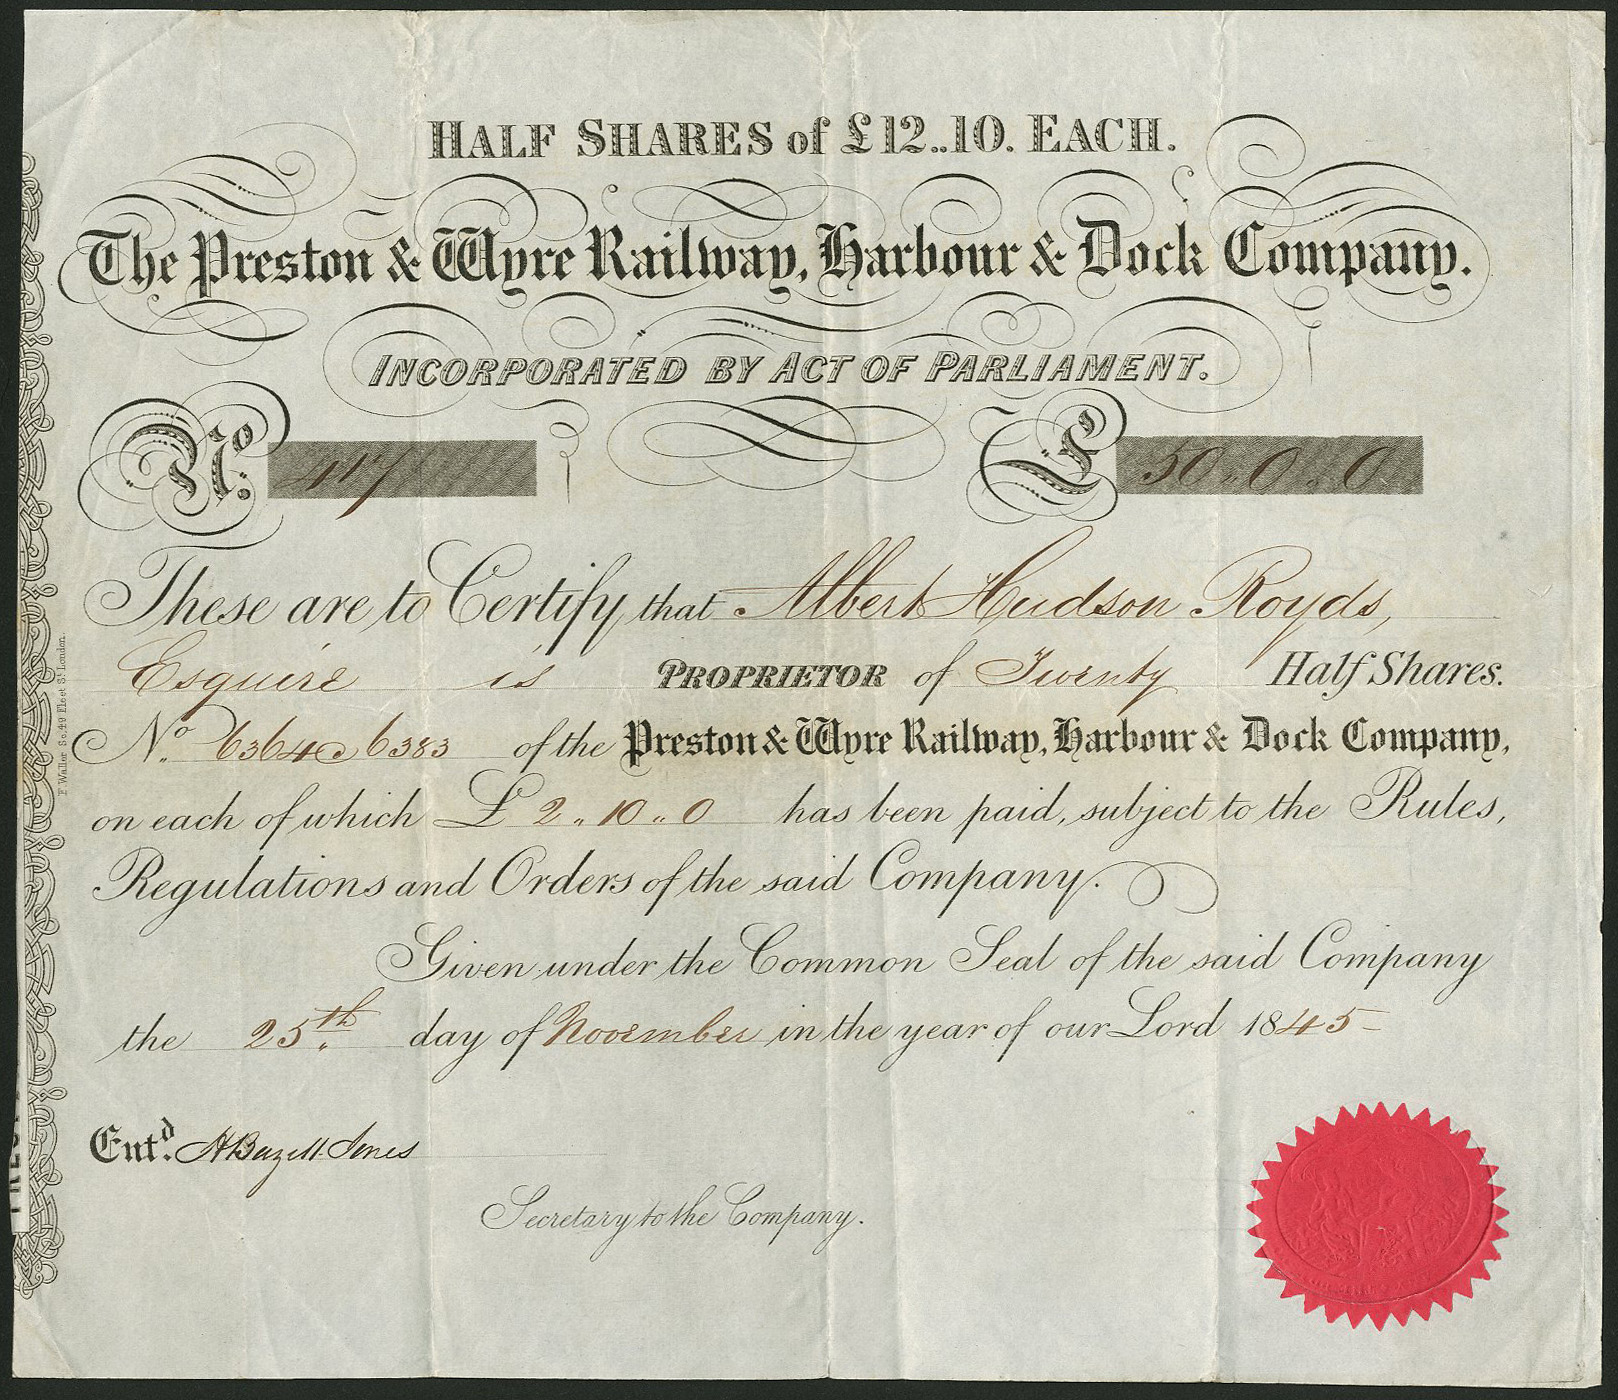 HALF SHARES of £12..10. EACH.
The Preston & Wyre Railway, Harbour & Dock Company.
INCORPORATED BY ACT OF PARLIAMENT.
No. 417 £ 50 .. 0 .. 0
These are to Certify that Albert Hudson Royds,
Esquire is PROPRIETOR of Twenty Half Shares.
No. 6364 @ 6383 of the Preston & Wyre Railway, Harbour & Dock Company,
on each of which £ 2 .. 10 .. 0 has been paid, subject to the Rules,
Regulations and Orders of the said Company.
Given under the Common Seal of the said Company
the 25th. day of November in the year of our Lord 1845
Entd. Jones
Secretary to the Company.
F. Waller Sc. 49 Fleet St. London.